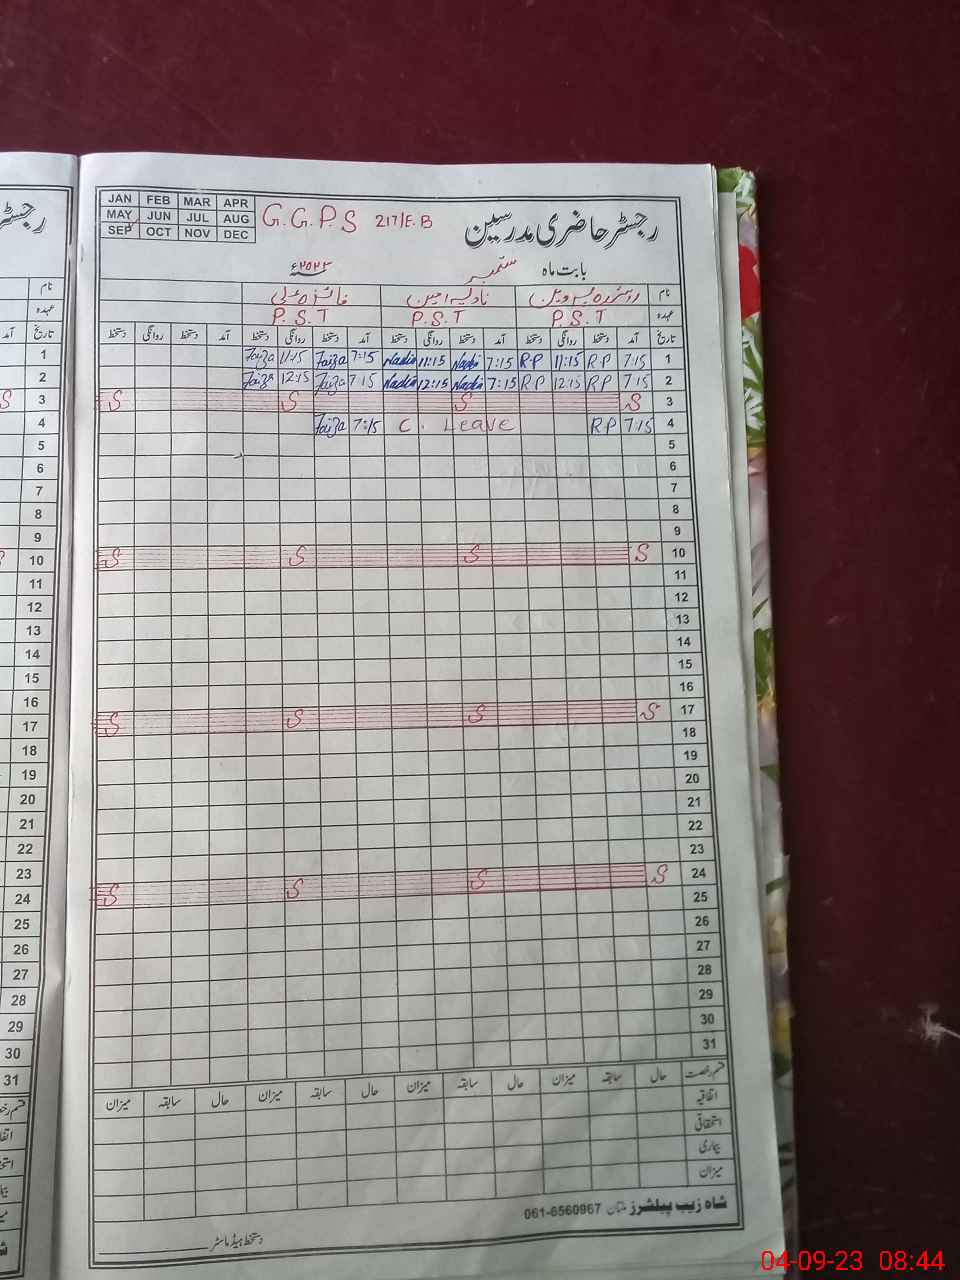 JAN FEB MAR APR
MAY JUN JUL AUG
SEP OCT NOV DEC
G.G.P.S 217/E.B
رجسٹر حاضری مدرسین
بابت ماہ ستمبر ۲۰۲۳ء
نام نادیہ امین فائزہ علی
عہدہ P.S.T P.S.T P.S.T
تاریخ آمد دستخط روانگی دستخط آمد دستخط روانگی دستخط آمد دستخط روانگی دستخط آمد دستخط روانگی دستخط
1 7:15 RP 11:15 RP 7:15 Nadia 11:15 Nadia 7:15 Faiza 11:15 Faiza
2 7:15 RP 12:15 RP 7:15 Nadia 12:15 Nadia 7:15 Faiza 12:15 Faiza
3 S S S S
4 7:15 RP C. Leave 7:15 Faiza
5
6
7
8
9
10 S S S S
11
12
13
14
15
16
17 S S S S
18
19
20
21
22
23
24 S S S S
25
26
27
28
29
30
31
قسم رخصت حال سابقہ میزان حال سابقہ میزان حال سابقہ میزان حال سابقہ میزان
اتفاقیہ
استحقاقی
بیماری
میزان
شاہ زیب پبلشرز ملتان 061-6560967
دستخط ہیڈ ماسٹر
رجسٹر
نام
عہدہ
تاریخ آمد
1
2
3 S
4
5
6
7
8
9
10
11
12
13
14
15
16
17
18
19
20
21
22
23
24
25
26
27
28
29
30
31
04-09-23 08:44